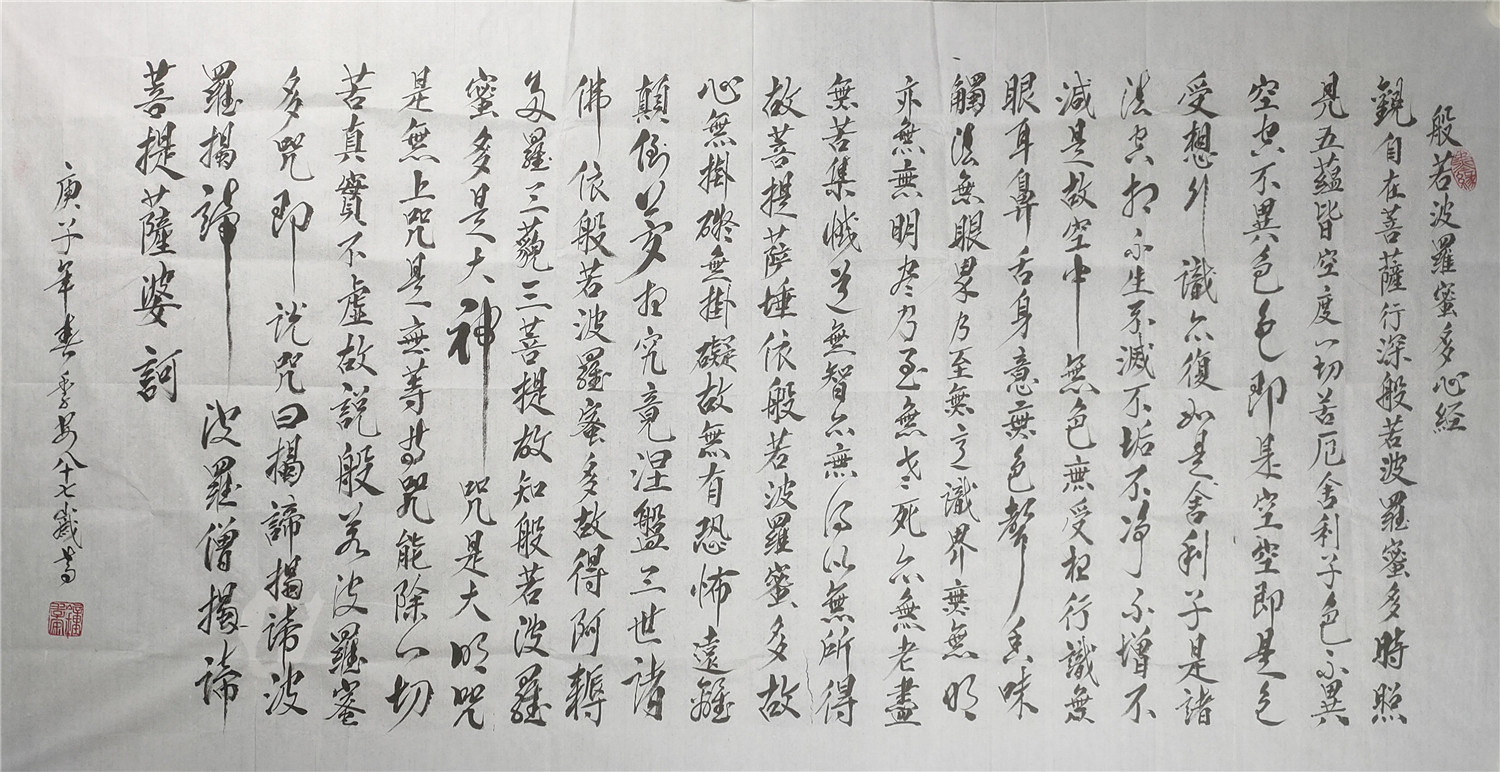 般若波羅蜜多心経
観自在菩薩行深般若波羅蜜多時照
見五蘊皆空度一切苦厄舍利子色不異
空空不異色色即是空空即是色
受想行識亦復如是舍利子是諸
法空相不生不滅不垢不净不增不
減是故空中無色無受想行識無
眼耳鼻舌身意無色聲香味
觸法無眼界乃至無意識界無無明
亦無無明尽乃至無老死亦無老盡
無苦集滅道無智亦無得以無所得
故菩提薩埵依般若波羅蜜多故
心無掛礙無掛礙故無有恐怖遠離
顛倒夢想究竟涅盤三世諸
佛依般若波羅蜜多故得阿耨
多羅三藐三菩提故知般若波羅
蜜多是大神咒是大明咒
是無上咒是無等等咒能除一切
苦真實不虛故説般若波羅蜜
多咒即説咒曰揭諦揭諦波
羅揭諦波羅僧揭諦
菩提薩婆訶
庚子年春季八十七歲書